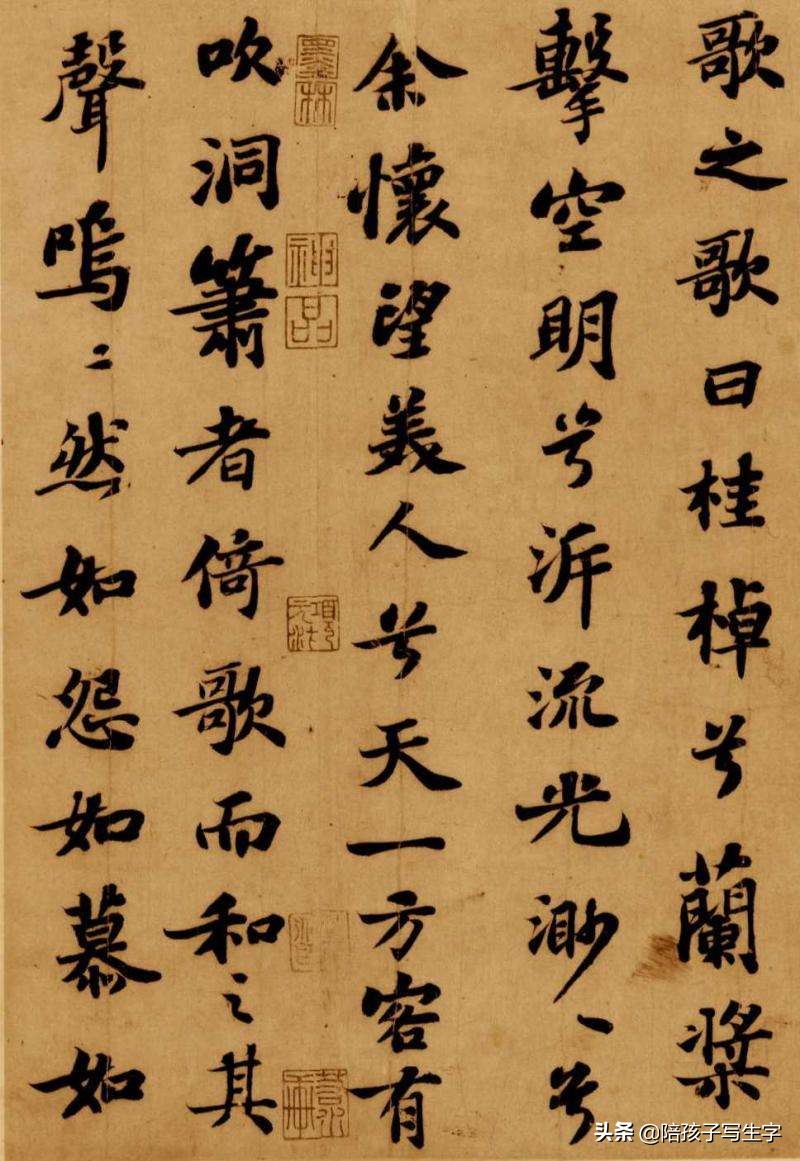 歌之歌曰桂棹兮蘭槳
擊空明兮泝流光渺〻兮
余懷望美人兮天一方客有
吹洞簫者倚歌而和之其
聲嗚〻然如怨如慕如
墨林
神品
头条 @陪孩子写生字